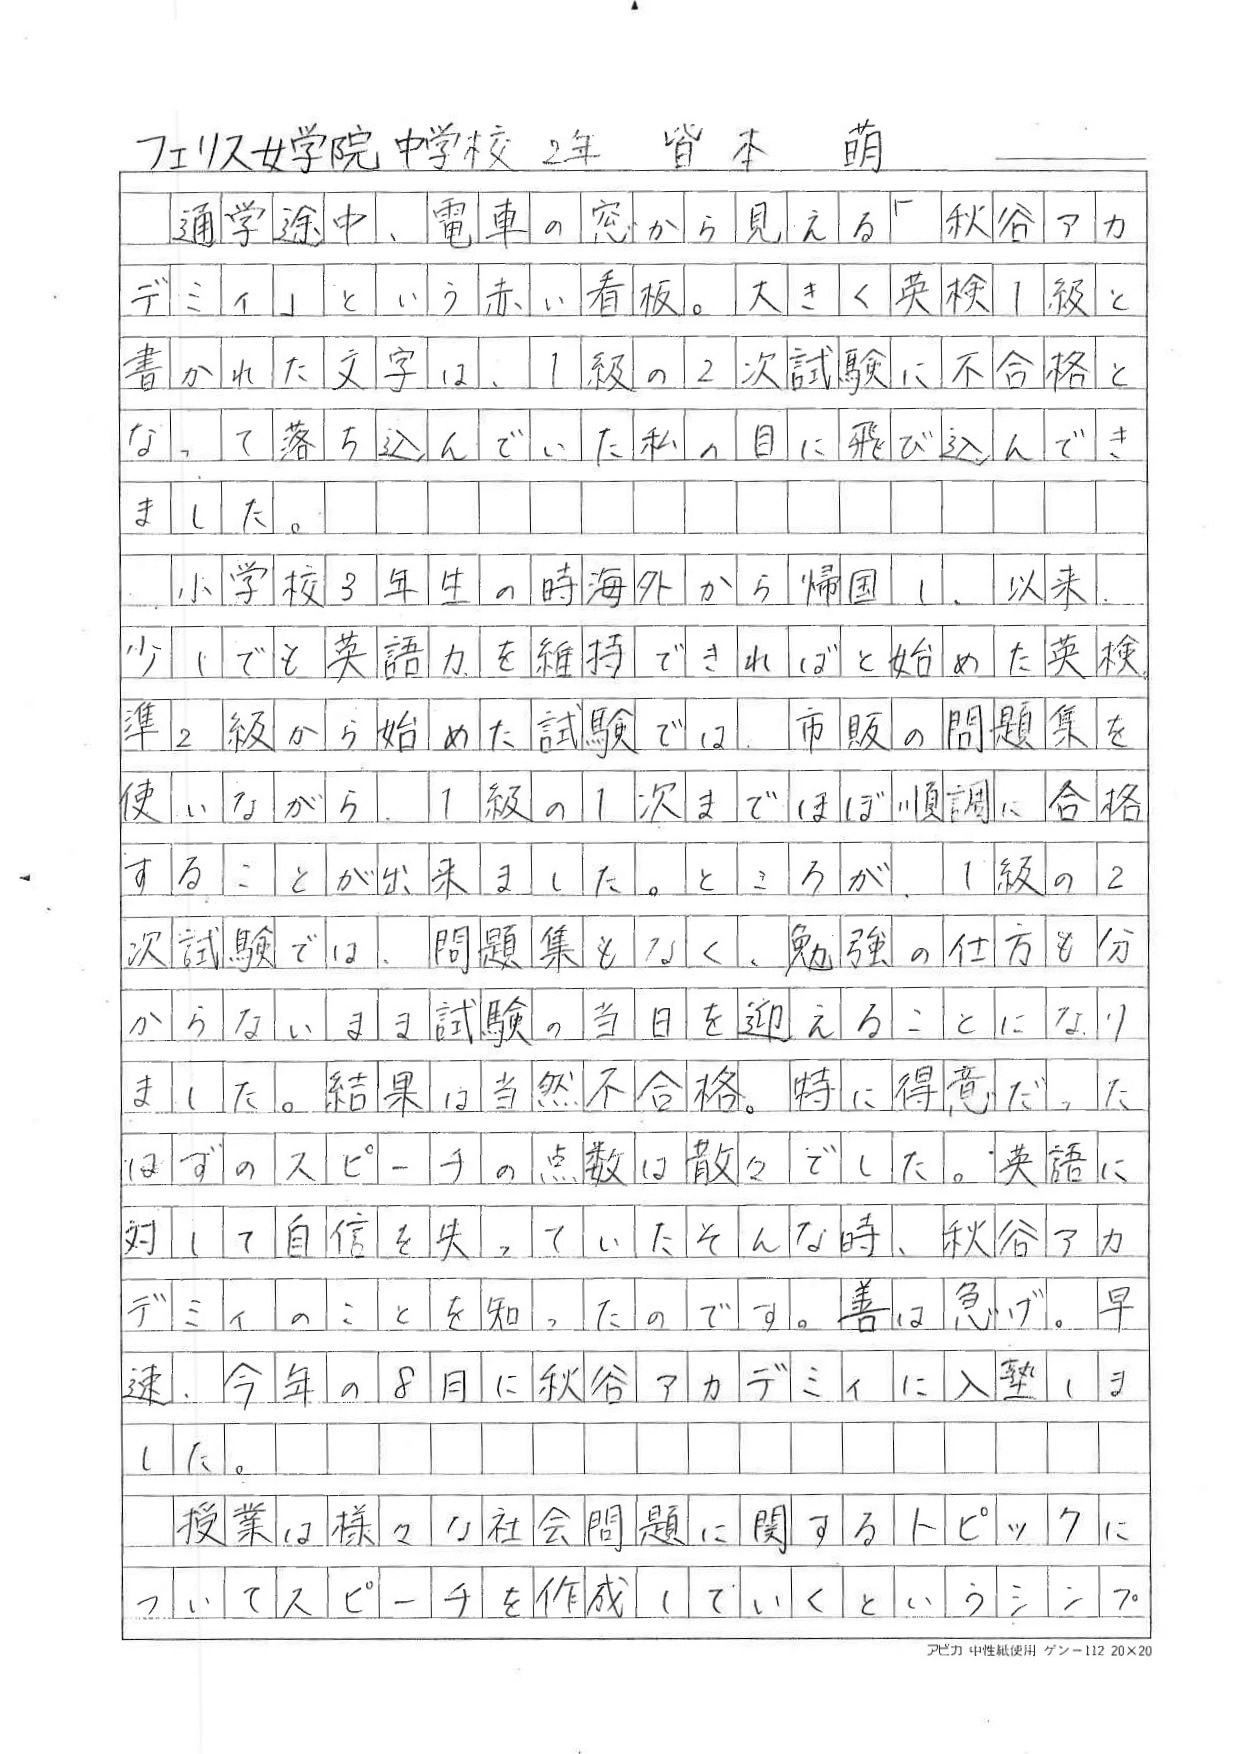 フェリス女学院中学校 2年 皆本 萌
通学途中、電車の窓から見える「秋谷アカ
デミィ」という赤い看板。大きく英検1級と
書かれた文字は、1級の2次試験に不合格と
なって落ち込んでいた私の目に飛び込んでき
ました。
小学校3年生の時海外から帰国し、以来、
少しでも英語力を維持できればと始めた英検。
準2級から始めた試験では、市販の問題集を
使いながら、1級の1次までほぼ順調に合格
することが出来ました。ところが、1級の2
次試験では、問題集もなく、勉強の仕方も分
からないまま試験の当日を迎えることになり
ました。結果は当然不合格。特に得意だった
はずのスピーチの点数は散々でした。英語に
対して自信を失っていたそんな時、秋谷アカ
デミィのことを知ったのです。善は急げ。早
速、今年の8月に秋谷アカデミィに入塾しま
した。
授業は様々な社会問題に関するトピックに
ついてスピーチを作成していくというシンプ
アピカ 中性紙使用 ゲンー112 20×20